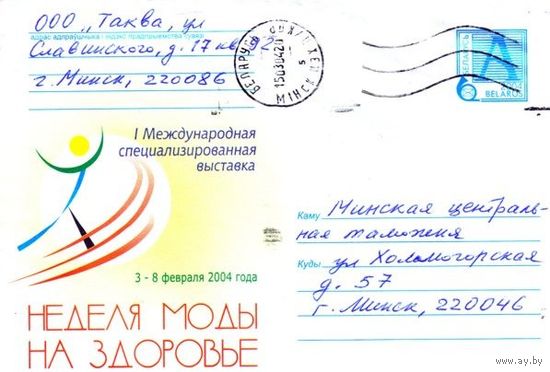 ООО „Таква, ул
адрас адпраўшчыка і індэкс прадпрыемства сувязі
Славинского, д. 17 кв 92
г. Минск, 220086
БЕЛАРУСЬ
МІНСК
150304
BELARUS
A
I Международная
специализированная
выставка
3 - 8 февраля 2004 года
НЕДЕЛЯ МОДЫ
НА ЗДОРОВЬЕ
Каму Минская централь-
ная таможня
Куды ул Холмогорская
д. 57
г. Минск, 220046
www.ay.by